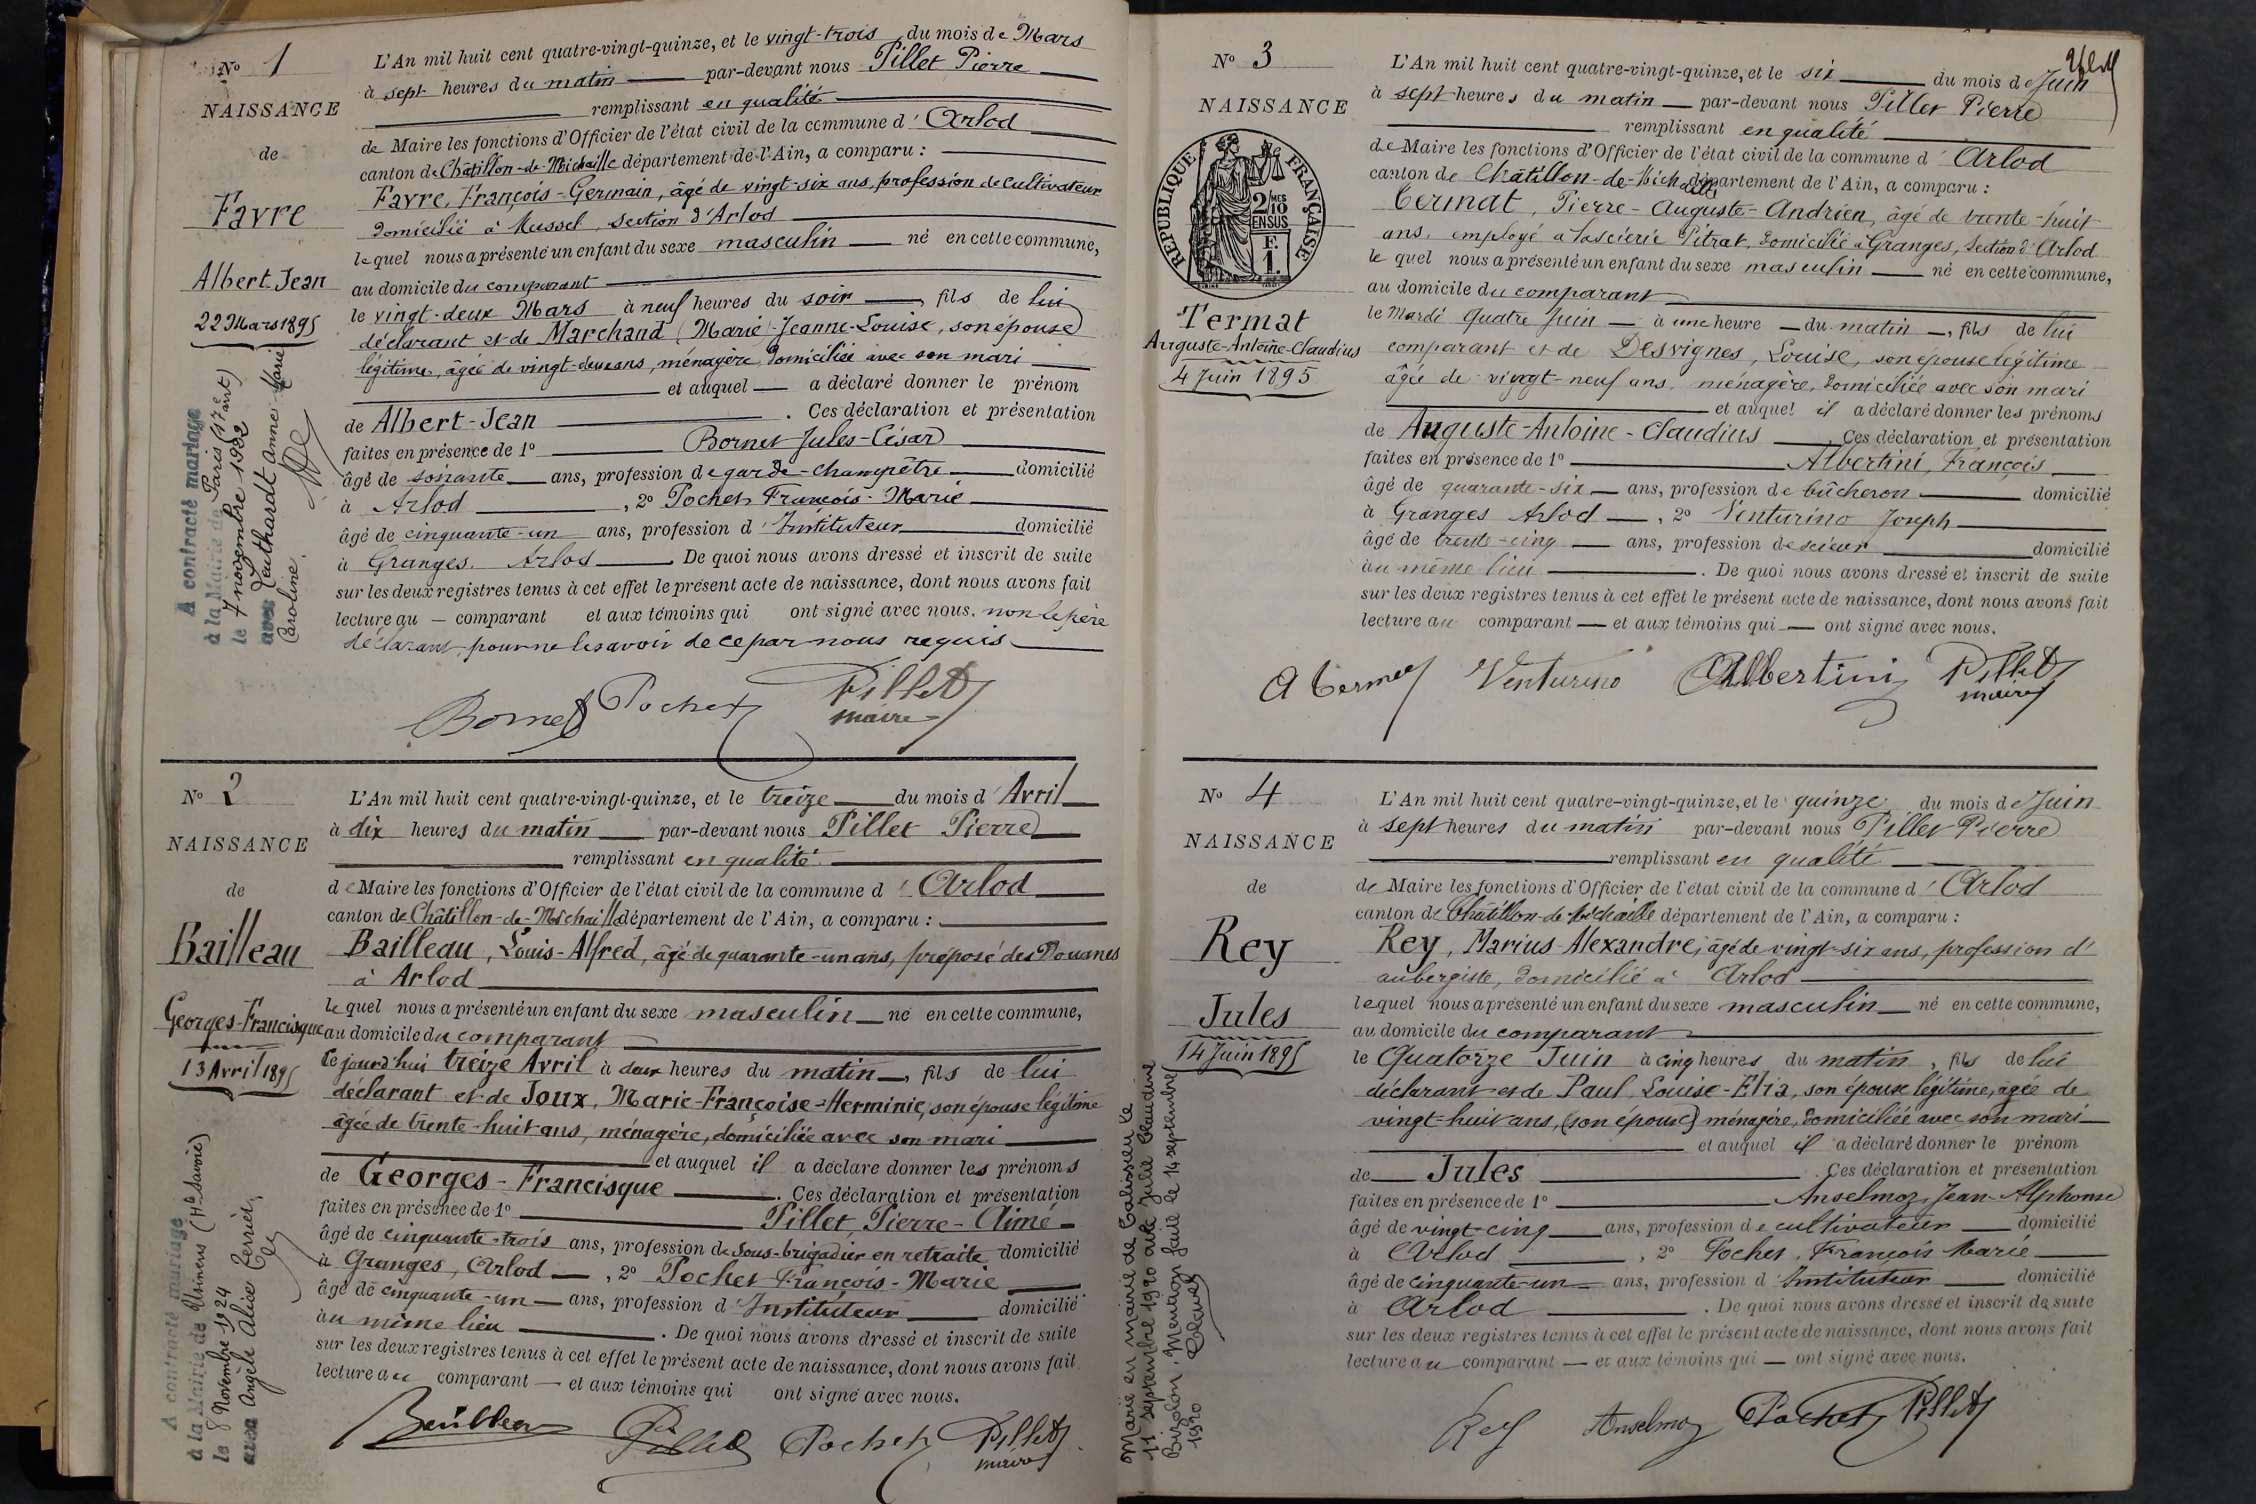 Nº 1
NAISSANCE
de
Favre
Albert Jean
22 Mars 1895
A contracté mariage
à la Mairie de Paris (17e arrt)
le 7 novembre 1922
avec Leuthardt Anne Marie
Caroline.
L'An mil huit cent quatre-vingt-quinze, et le vingt-trois du mois de Mars
à sept heures du matin par-devant nous Pillet Pierre
remplissant en qualité
de Maire les fonctions d'Officier de l'état civil de la commune d'Arlod
canton de Châtillon-de-Michaille département de l'Ain, a comparu :
Favre, François-Germain, âgé de vingt-six ans, profession de cultivateur
domicilié à Mussel, section d'Arlod
lequel nous a présenté un enfant du sexe masculin né en cette commune,
au domicile du comparant
le vingt-deux Mars à neuf heures du soir, fils de lui
déclarant et de Marchand (Marie)-Jeanne-Louise, son épouse
légitime, âgée de vingt-deux ans, ménagère, domiciliée avec son mari
et auquel a déclaré donner le prénom
de Albert-Jean. Ces déclaration et présentation
faites en présence de 1º Bornet Jules-César
âgé de soixante ans, profession de garde-champêtre domicilié
à Arlod, 2º Pochet François-Marie
âgé de cinquante-un ans, profession d'Instituteur domicilié
à Granges. Arlod. De quoi nous avons dressé et inscrit de suite
sur les deux registres tenus à cet effet le présent acte de naissance, dont nous avons fait
lecture au comparant et aux témoins qui ont signé avec nous. non le père
déclarant, pour ne le savoir de ce par nous requis
Bornet Pochet Pillet
maire
Nº 2
NAISSANCE
de
Bailleau
Georges-Francisque
13 Avril 1895
A contracté mariage
à la Mairie de Usinens (Hte Savoie)
le 8 Novembre 1924
avec Angèle Alice Terrier
L'An mil huit cent quatre-vingt-quinze, et le treize du mois d'Avril
à dix heures du matin par-devant nous Pillet Pierre
remplissant en qualité
de Maire les fonctions d'Officier de l'état civil de la commune d'Arlod
canton de Châtillon-de-Michaille département de l'Ain, a comparu :
Bailleau, Louis-Alfred, âgé de quarante-un ans, préposé des Douanes
à Arlod
lequel nous a présenté un enfant du sexe masculin né en cette commune,
au domicile du comparant
Ce jourd'hui treize Avril à deux heures du matin, fils de lui
déclarant et de Joux, Marie-Françoise-Herminie, son épouse légitime
âgée de trente-huit ans, ménagère, domiciliée avec son mari
et auquel il a déclaré donner les prénoms
de Georges-Francisque. Ces déclaration et présentation
faites en présence de 1º Pillet, Pierre-Aimé
âgé de cinquante-trois ans, profession de Sous-brigadier en retraite domicilié
à Granges, Arlod, 2º Pochet François-Marie
âgé de cinquante-un ans, profession d'Instituteur domicilié
au même lieu. De quoi nous avons dressé et inscrit de suite
sur les deux registres tenus à cet effet le présent acte de naissance, dont nous avons fait
lecture au comparant et aux témoins qui ont signé avec nous.
Bailleau Pillet Pochet Pillet
maire
Nº 3
NAISSANCE
de
RÉPUBLIQUE FRANÇAISE
2/10
MES
EN SUS
F.
1.
Termat
Auguste-Antoine-Claudius
4 Juin 1895
L'An mil huit cent quatre-vingt-quinze, et le six du mois de Juin
à sept heures du matin par-devant nous Pillet Pierre
remplissant en qualité
de Maire les fonctions d'Officier de l'état civil de la commune d'Arlod
canton de Châtillon-de-Michaille département de l'Ain, a comparu :
Termat, Pierre-Auguste-Andrien, âgé de trente-huit
ans, employé à la scierie Pitrat, domicilié à Granges, Section d'Arlod
lequel nous a présenté un enfant du sexe masculin né en cette commune,
au domicile du comparant
le Mardi quatre Juin à une heure du matin, fils de lui
comparant et de Desvignes, Louise, son épouse légitime
âgée de vingt-neuf ans, ménagère, domiciliée avec son mari
et auquel il a déclaré donner les prénoms
de Auguste-Antoine-Claudius. Ces déclaration et présentation
faites en présence de 1º Albertini, François
âgé de quarante-six ans, profession de bûcheron domicilié
à Granges Arlod, 2º Venturino Joseph
âgé de trente-cinq ans, profession de scieur domicilié
au même lieu. De quoi nous avons dressé et inscrit de suite
sur les deux registres tenus à cet effet le présent acte de naissance, dont nous avons fait
lecture au comparant et aux témoins qui ont signé avec nous.
A Termat Venturino Albertini Pillet
maire
Nº 4
NAISSANCE
de
Rey
Jules
14 Juin 1895
Marié en mairie de Talissieu le
11 septembre 1920 avec Julie Claudine
Birolon. Mention faite le 14 septembre
1920
L'An mil huit cent quatre-vingt-quinze, et le quinze du mois de Juin
à sept heures du matin par-devant nous Pillet Pierre
remplissant en qualité
de Maire les fonctions d'Officier de l'état civil de la commune d'Arlod
canton de Châtillon-de-Michaille département de l'Ain, a comparu :
Rey, Marius-Alexandre, âgé de vingt-six ans, profession d'
aubergiste, domicilié à Arlod
lequel nous a présenté un enfant du sexe masculin né en cette commune,
au domicile du comparant
le Quatorze Juin à cinq heures du matin, fils de lui
déclarant et de Paul, Louise-Elia, son épouse légitime, âgée de
vingt-huit ans, (son épouse) ménagère, domiciliée avec son mari
et auquel il a déclaré donner le prénom
de Jules. Ces déclaration et présentation
faites en présence de 1º Anselmoz, Jean-Alphonse
âgé de vingt-cinq ans, profession de cultivateur domicilié
à Arlod, 2º Pochet, François Marie
âgé de cinquante-un ans, profession d'Instituteur domicilié
à Arlod. De quoi nous avons dressé et inscrit de suite
sur les deux registres tenus à cet effet le présent acte de naissance, dont nous avons fait
lecture au comparant et aux témoins qui ont signé avec nous.
Rey Anselmoz Pochet Pillet